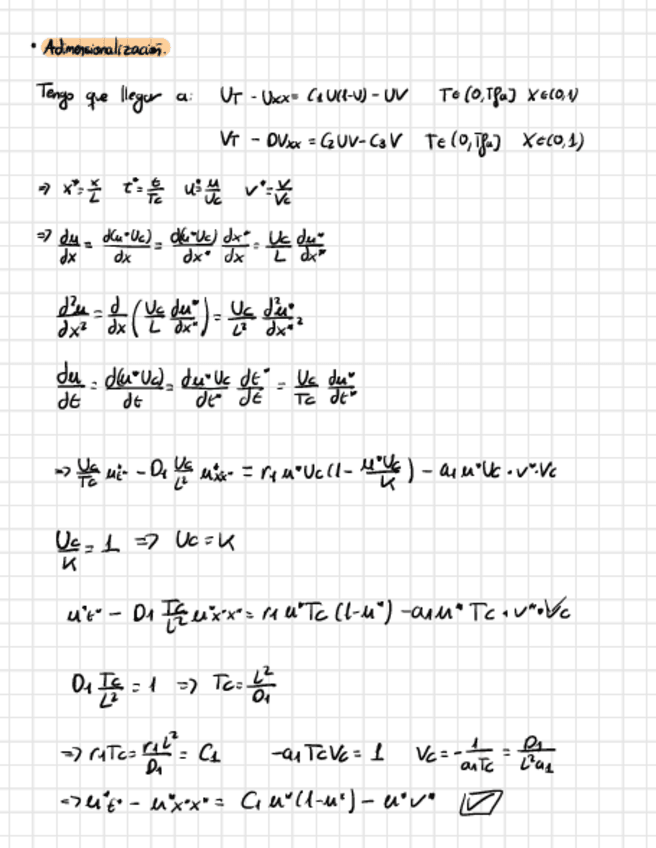 • Adimensionalización.
Tengo que llegar a: U_T - U_XX = C_1 U(1-U) - UV    T∈(0,T_fin]  X∈(0,1)
V_T - DV_XX = C_2 UV - C_3 V    T∈(0,T_fin]  X∈(0,1)
⇒ x* = x/L   t* = t/Tc   u* = u/Uc   v* = v/Vc
⇒ du/dx = d(u*Uc)/dx = d(u*Uc)/dx* dx*/dx = Uc/L du*/dx*
d²u/dx² = d/dx (Uc/L du*/dx*) = Uc/L² d²u*/dx*²
du/dt = d(u*Uc)/dt = du*Uc/dt* dt*/dt = Uc/Tc du*/dt*
⇒ Uc/Tc u*t* - D1 Uc/L² u*x*x* = r1 u*Uc (1 - u*Uc/K) - a1 u*Uc · v*·Vc
Uc/K = 1 ⇒ Uc = K
u*t* - D1 Tc/L² u*x*x* = r1 u*Tc (1-u*) - a1 u* Tc · v*·Vc
D1 Tc/L² = 1 ⇒ Tc = L²/D1
⇒ r1Tc = r1L²/D1 = C1    -a1TcVc = 1   Vc = -1/a1Tc = D1/L²a1
⇒ u*t* - u*x*x* = C1 u*(1-u*) - u*v* ☑